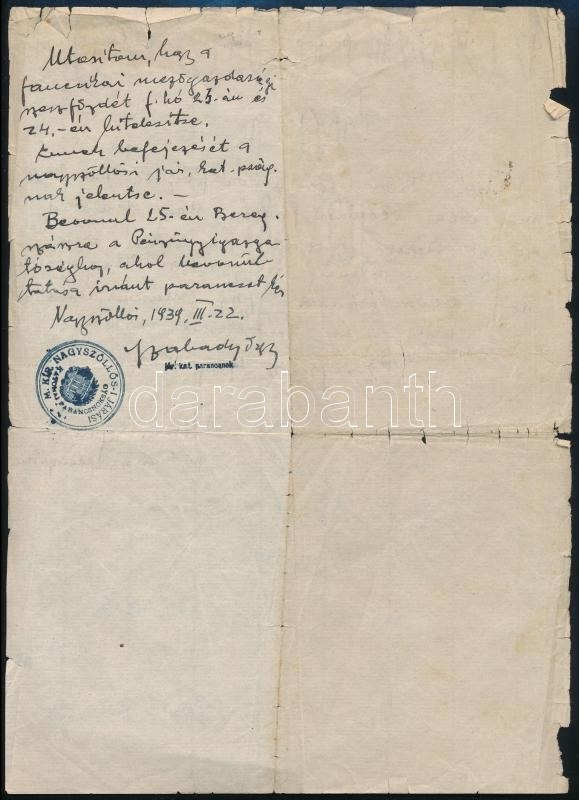 Utasítom, hogy a
fancsikai mezőgazdasági
szeszfőzdét f. hó 23.-án és
24.-én hitelesítse.
Ennek befejezését a
nagyszöllősi jár. kat. pság.
nak jelentse. –
Bevonul 25-én Bereg-
szászra a Pénzügyigazga
tósághoz, ahol bevonul
tatása iránt parancsot
Nagyszöllős, 1939. III. 22.
Szabady
jár. kat. parancsnok
M. KIR. NAGYSZŐLLŐS-I JÁRÁSI
KATONAI PARANCSNOKSÁG
darabanth